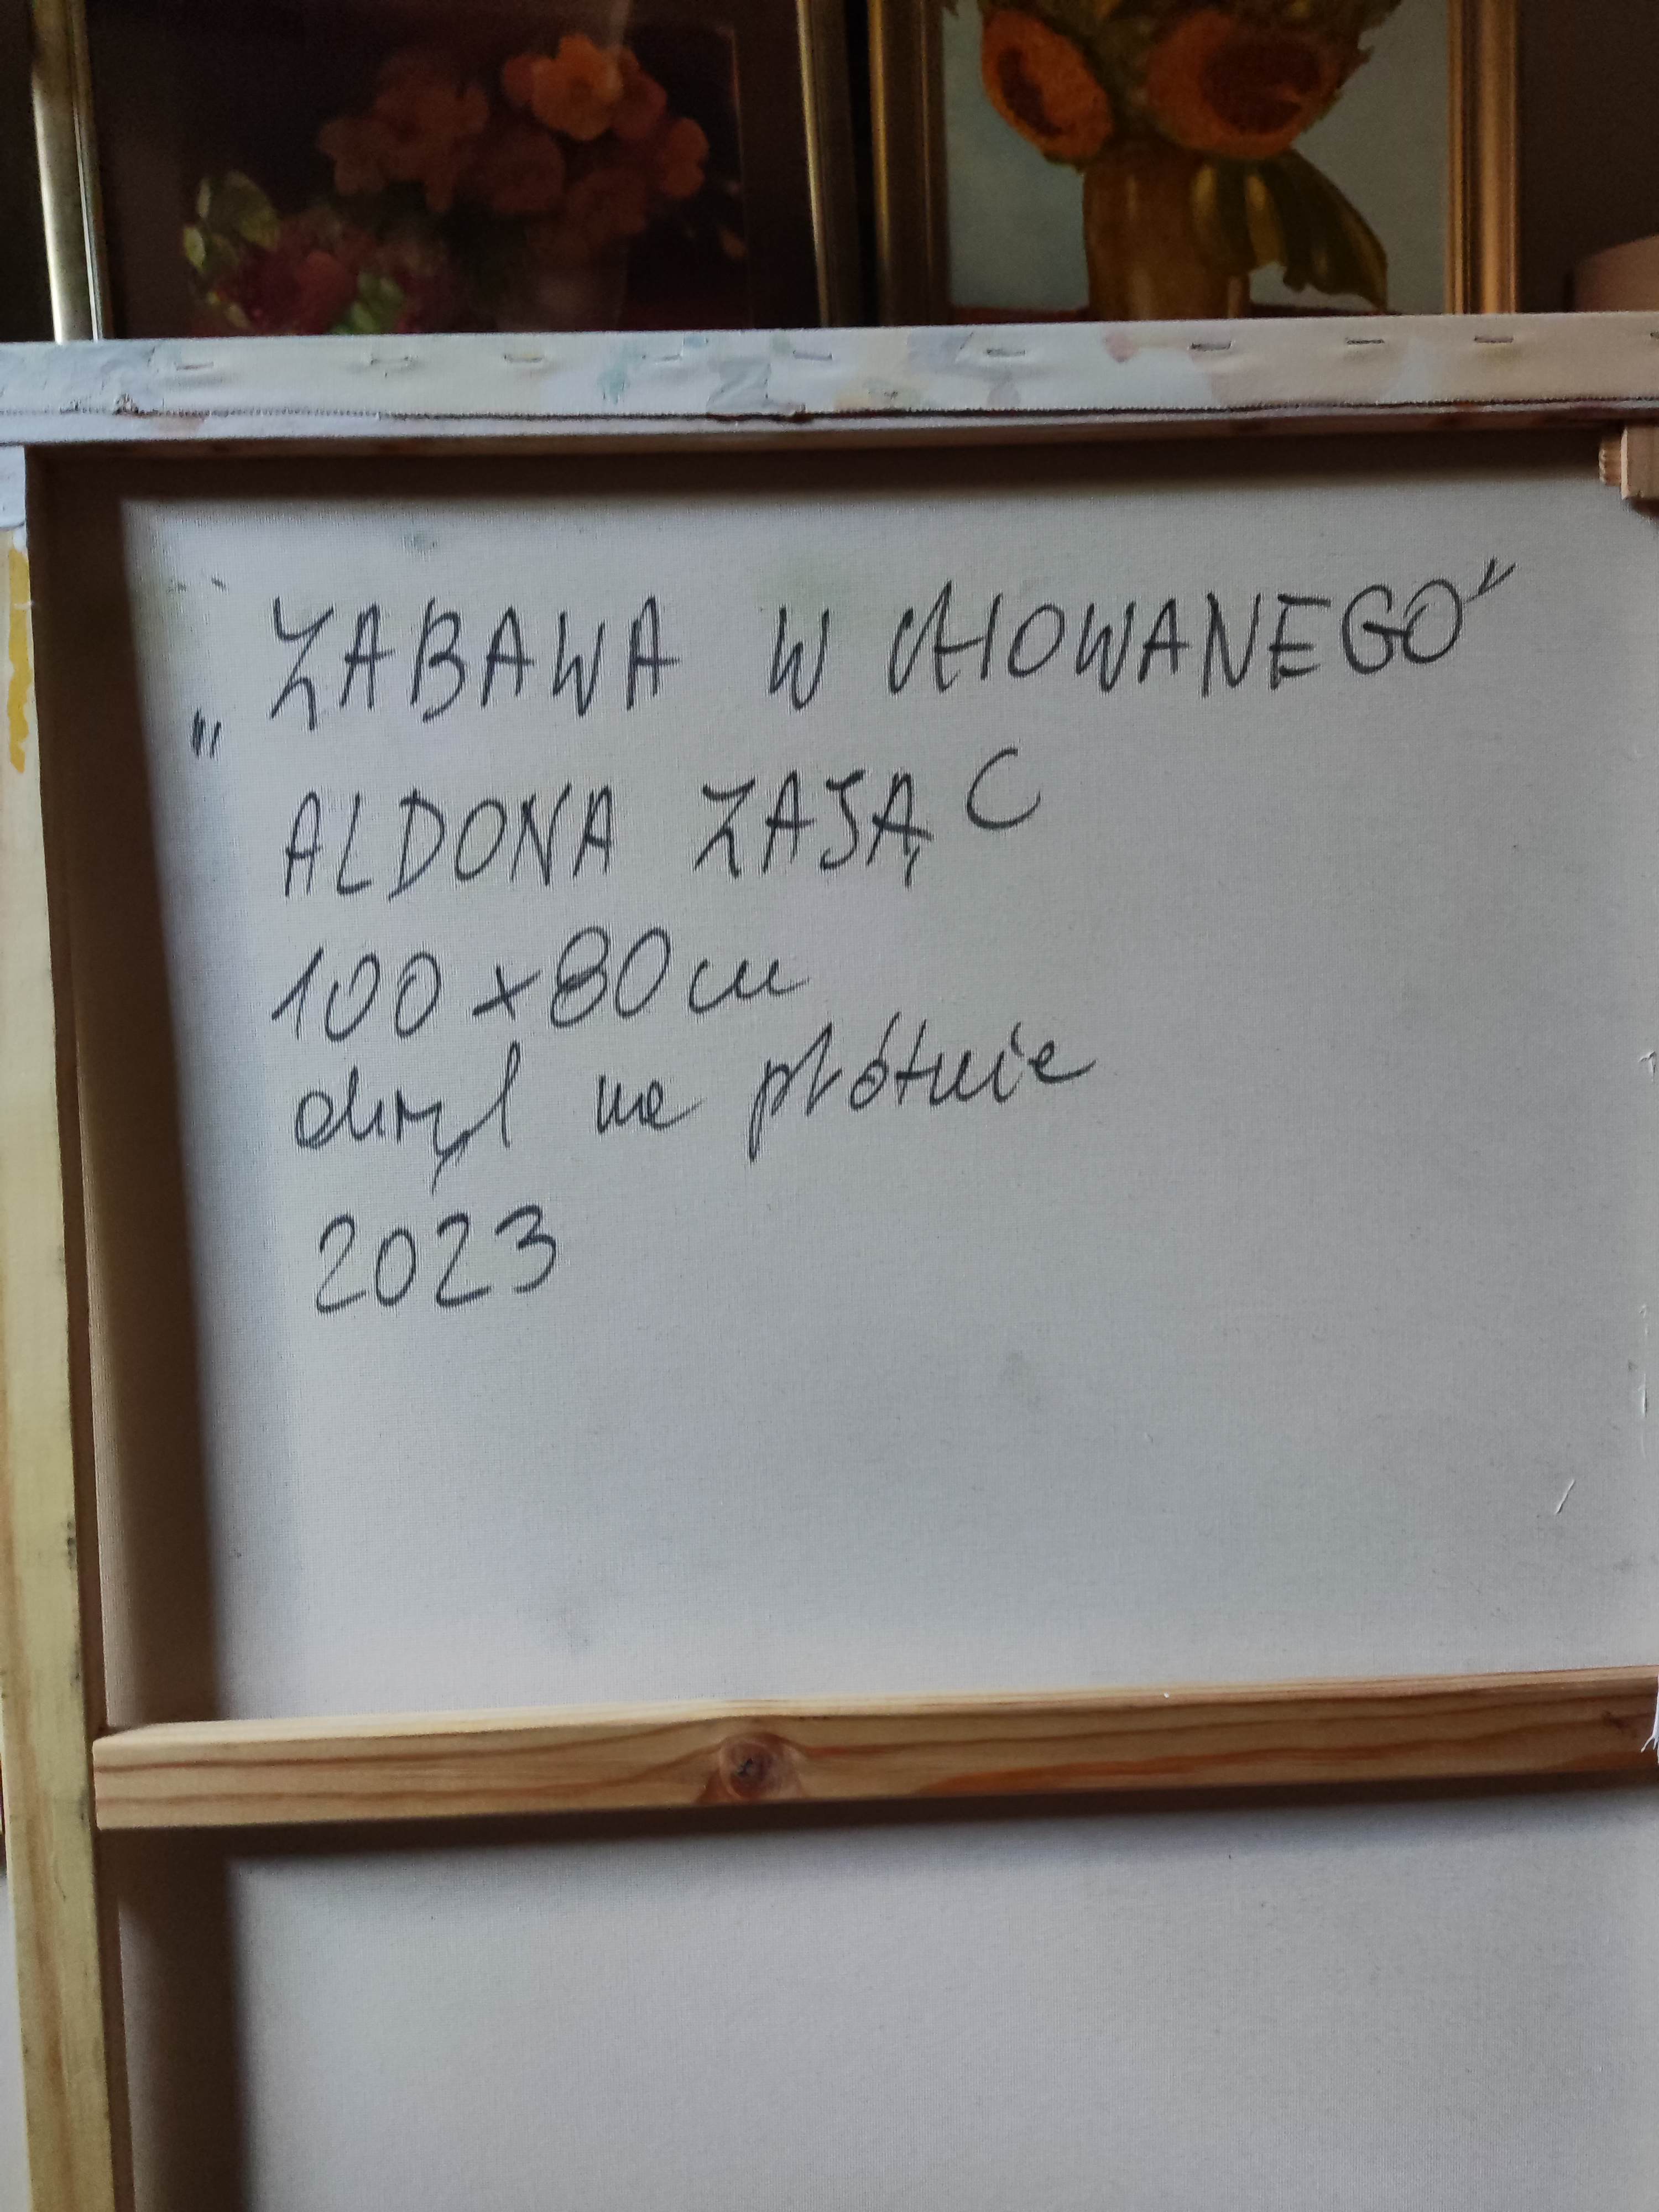 „ZABAWA W CHOWANEGO”
ALDONA ZAJĄC
100x80cm
akryl na płótnie
2023